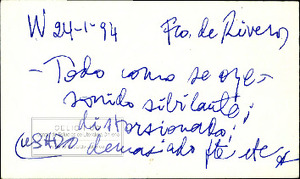 W 24-1-94 Fco. de Rivero
- Todo como se oye -
sonido sibilante;
distorsionado;
(USADO demasiado fte, etc